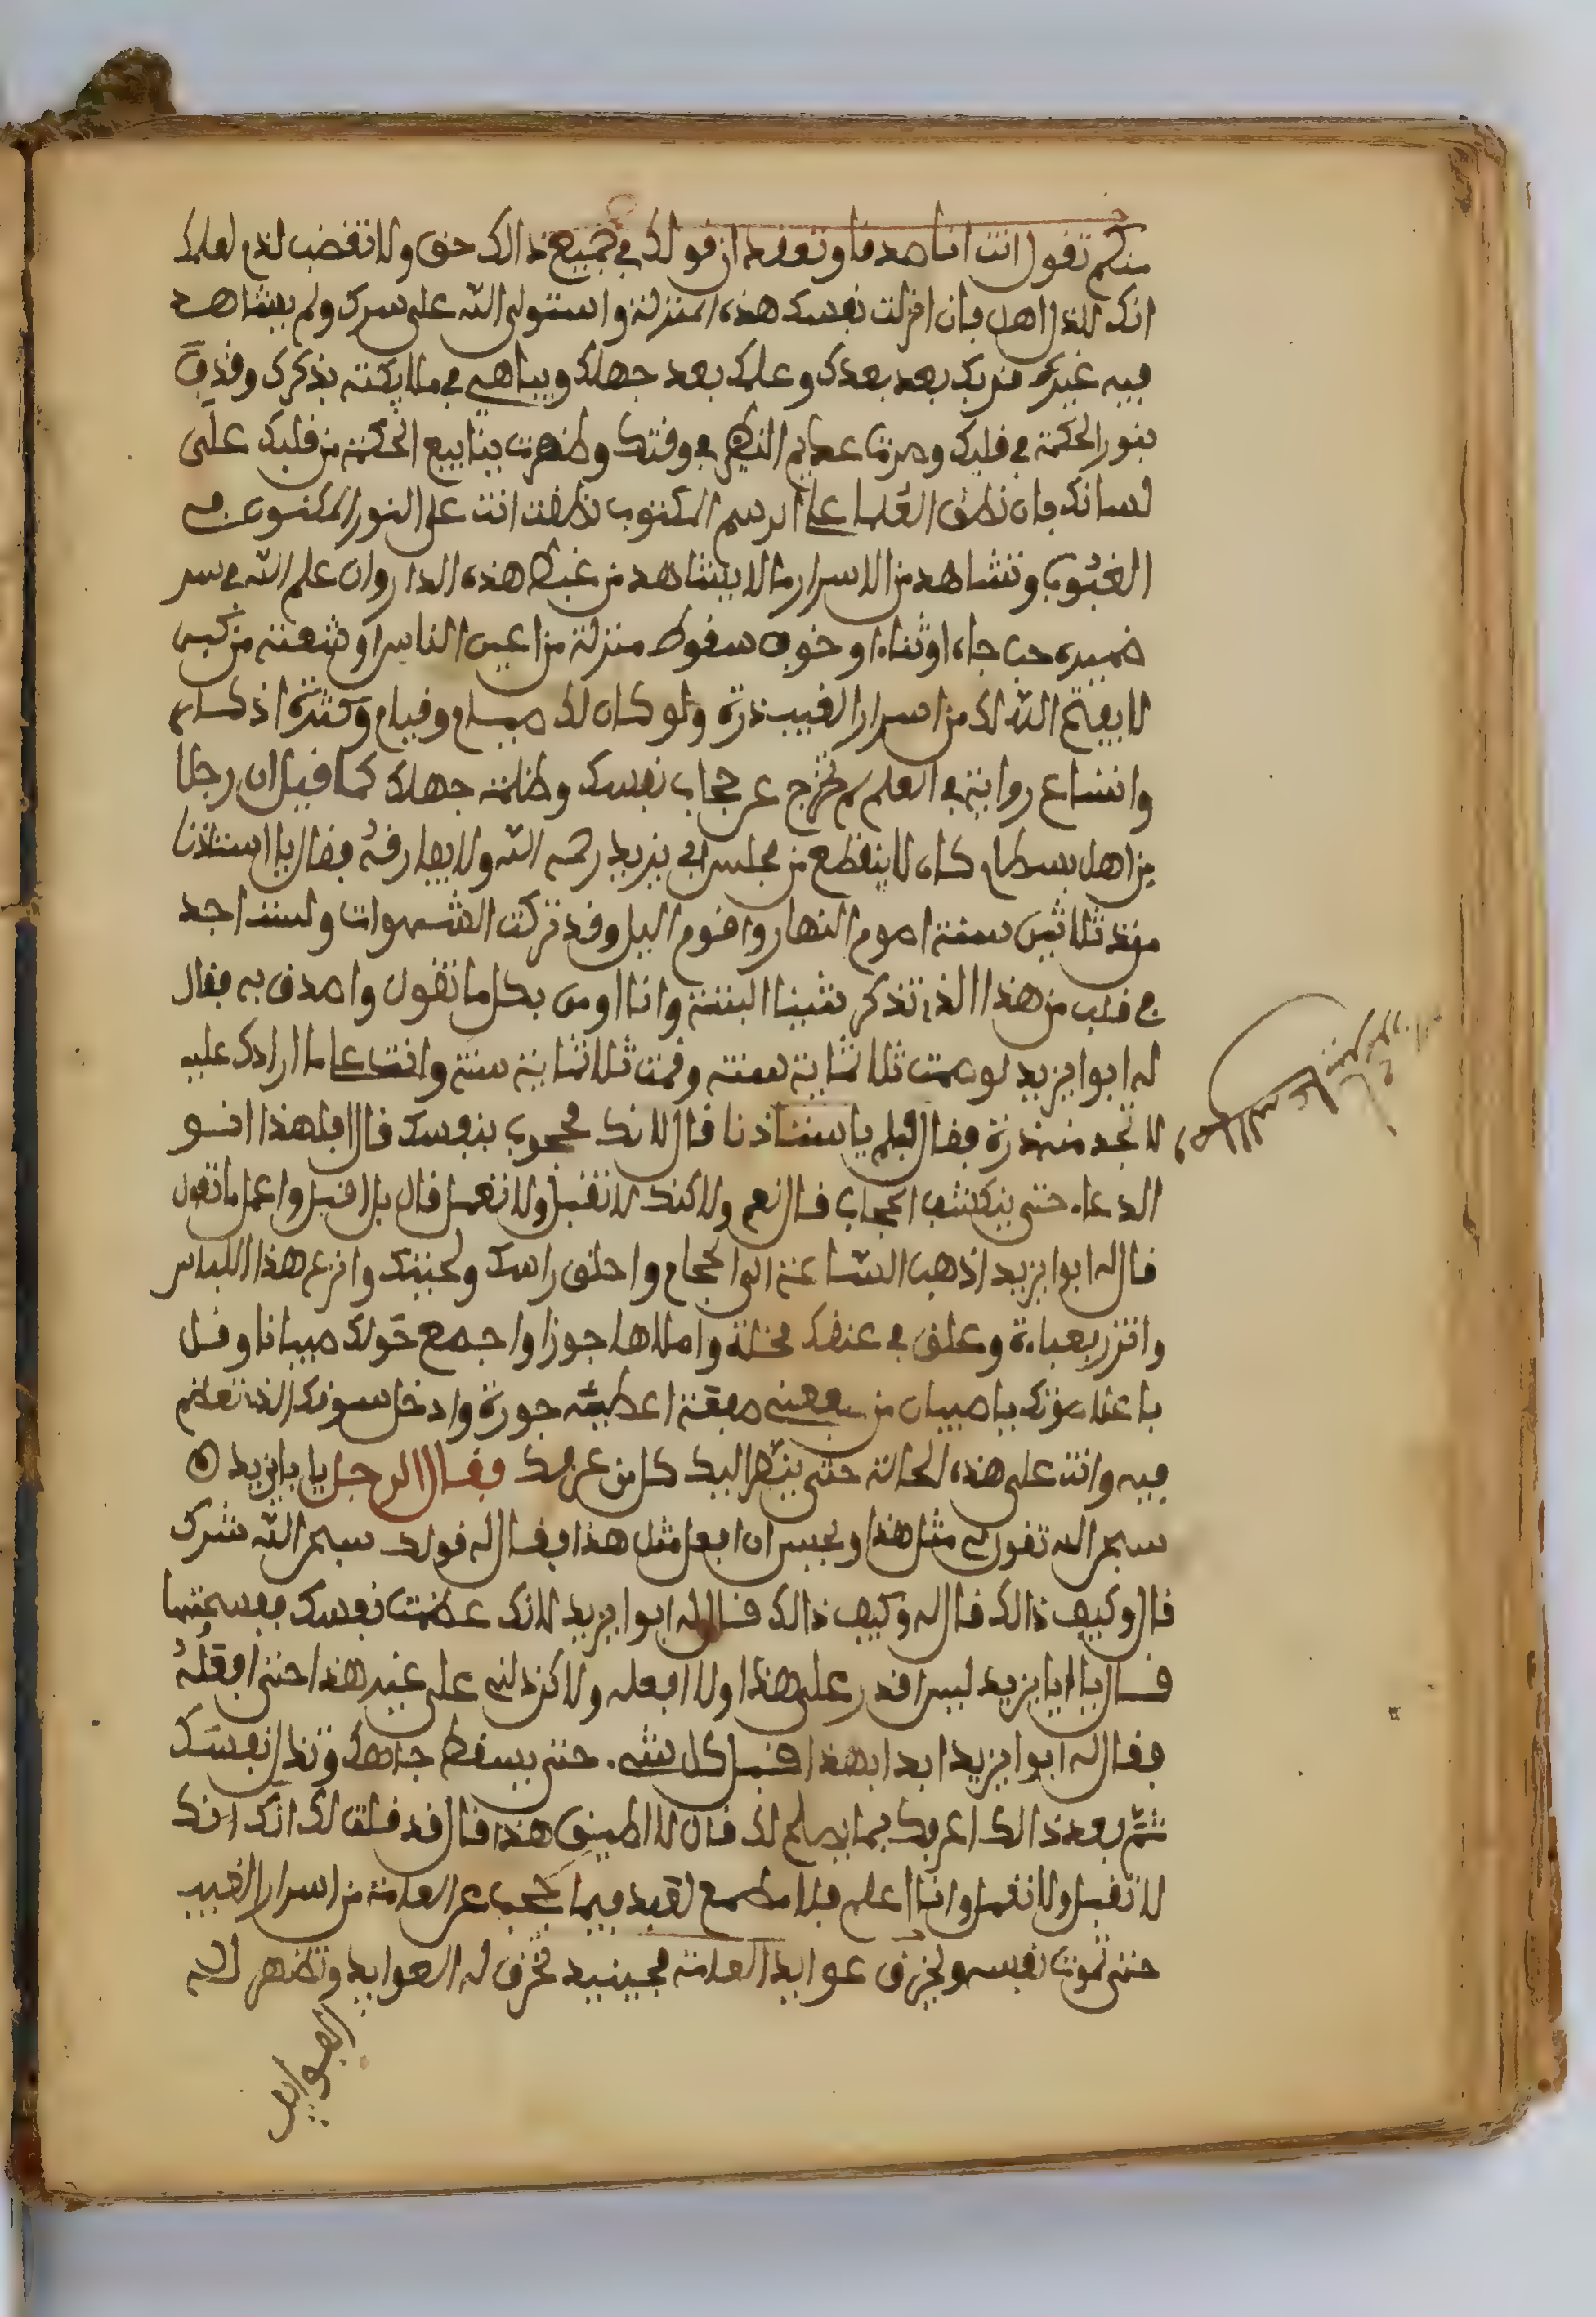 منكم تقول انت انا صدقا وتعقد ان قولك في جميع ذالك حق ولا تغضب لذم لعلمك
انك للذل اهل فان انزلت نفسك هذه المنزلة واستولى الله على سرك ولم يشاهد
فيه غيره قربك بعد بعدك وعلمك بعد جهلك ويباهي في ملايكته بذكرك وقذف
بنور الحكمة في قلبك وصرت عديم النظير في وقتك وظهرت ينابيع الحكمة من قلبك على
لسانك فان نطق العلما على الرسم المكتوب نطقت انت على النور المكنون في
الغيوب وتشاهد من الاسرار ما لا يشاهد من غيرك هذه الدار وان علم الله في سر
ضميره حب جاه او ثناء او خوف سقوط منزلة من اعين الناس او شعثة من كبر
لا يفتح الله لك من اسرار الغيب ذرة ولو كان لك صيام وقيام وكثرة اذكار
واتساع رواية في العلم لم تخرج عن حجاب نفسك وظلمة جهلك كما قيل ان رجلا
من اهل بسطام كان لا ينقطع من مجلس ابي يزيد رحمه الله ولا يفارقه فقال يا استاذنا
منذ ثلاثين سنة اصوم النهار واقوم اليل وقد تركت الشهوات ولست اجد
في قلب من هذا الذي تذكر شيئا البتة وانا اومن بكل ما تقول واصدق به فقال
له ابوا يزيد لو صمت ثلاثماية سنة وقمت ثلاثماية سنة وانت على ما اراك عليه
لا تجد منه ذرة فقال فلم يا استاذنا قال لانك محجوب بنفسك قال افلهذا انسو
الدعاء حتى ينكشف الحجاب قال نعم ولاكنك لا تقبل ولا تعمل قال بل اقبل واعمل ما تقول
قال له ابوا يزيد اذهب الساعة الى الحجام واحلق راسك ولحيتك وانزع هذا اللباس
واتزر بعباءة وعلق في عنقك مخلة واملاها جوزا واجمع حولك صبيانا وقل
با علا صوتك يا صبيان من يصفعني صفعة اعطيته جوزة وادخل سوقك الذي تعظم
فيه وانت على هذه الحالة حتى ينظر اليك كل من عرفك فقال الرجل يا بايزيد
سبحن الله تقول لي مثل هذا ويحسن ان افعل مثل هذا فقال له قولك سبحن الله شرك
قال وكيف ذالك قال له وكيف ذالك قال له ابوا يزيد لانك عظمت نفسك فسبحتها
قال يا ابا يزيد ليس اقدر على هذا ولا افعله ولاكن دلني على غير هذا حتى افعله
فقال له ابوا يزيد ابدا بهذا قبل كل شيء حتى يسقط جاهك وتذل نفسك
ثم بعد ذالك اعرفك بما يصلح لك قال لا اطيق هذا قال قد قلت لك انك انك
لا تقبل ولا تعمل وانا اعلم فلا مطمع لعبد فيما يحجب عن العامة من اسرار الغيب
حتى تموت نفسه ويخرق عوايد العامة فحينيد تخرق له العوايد وتظهر له
العوايد